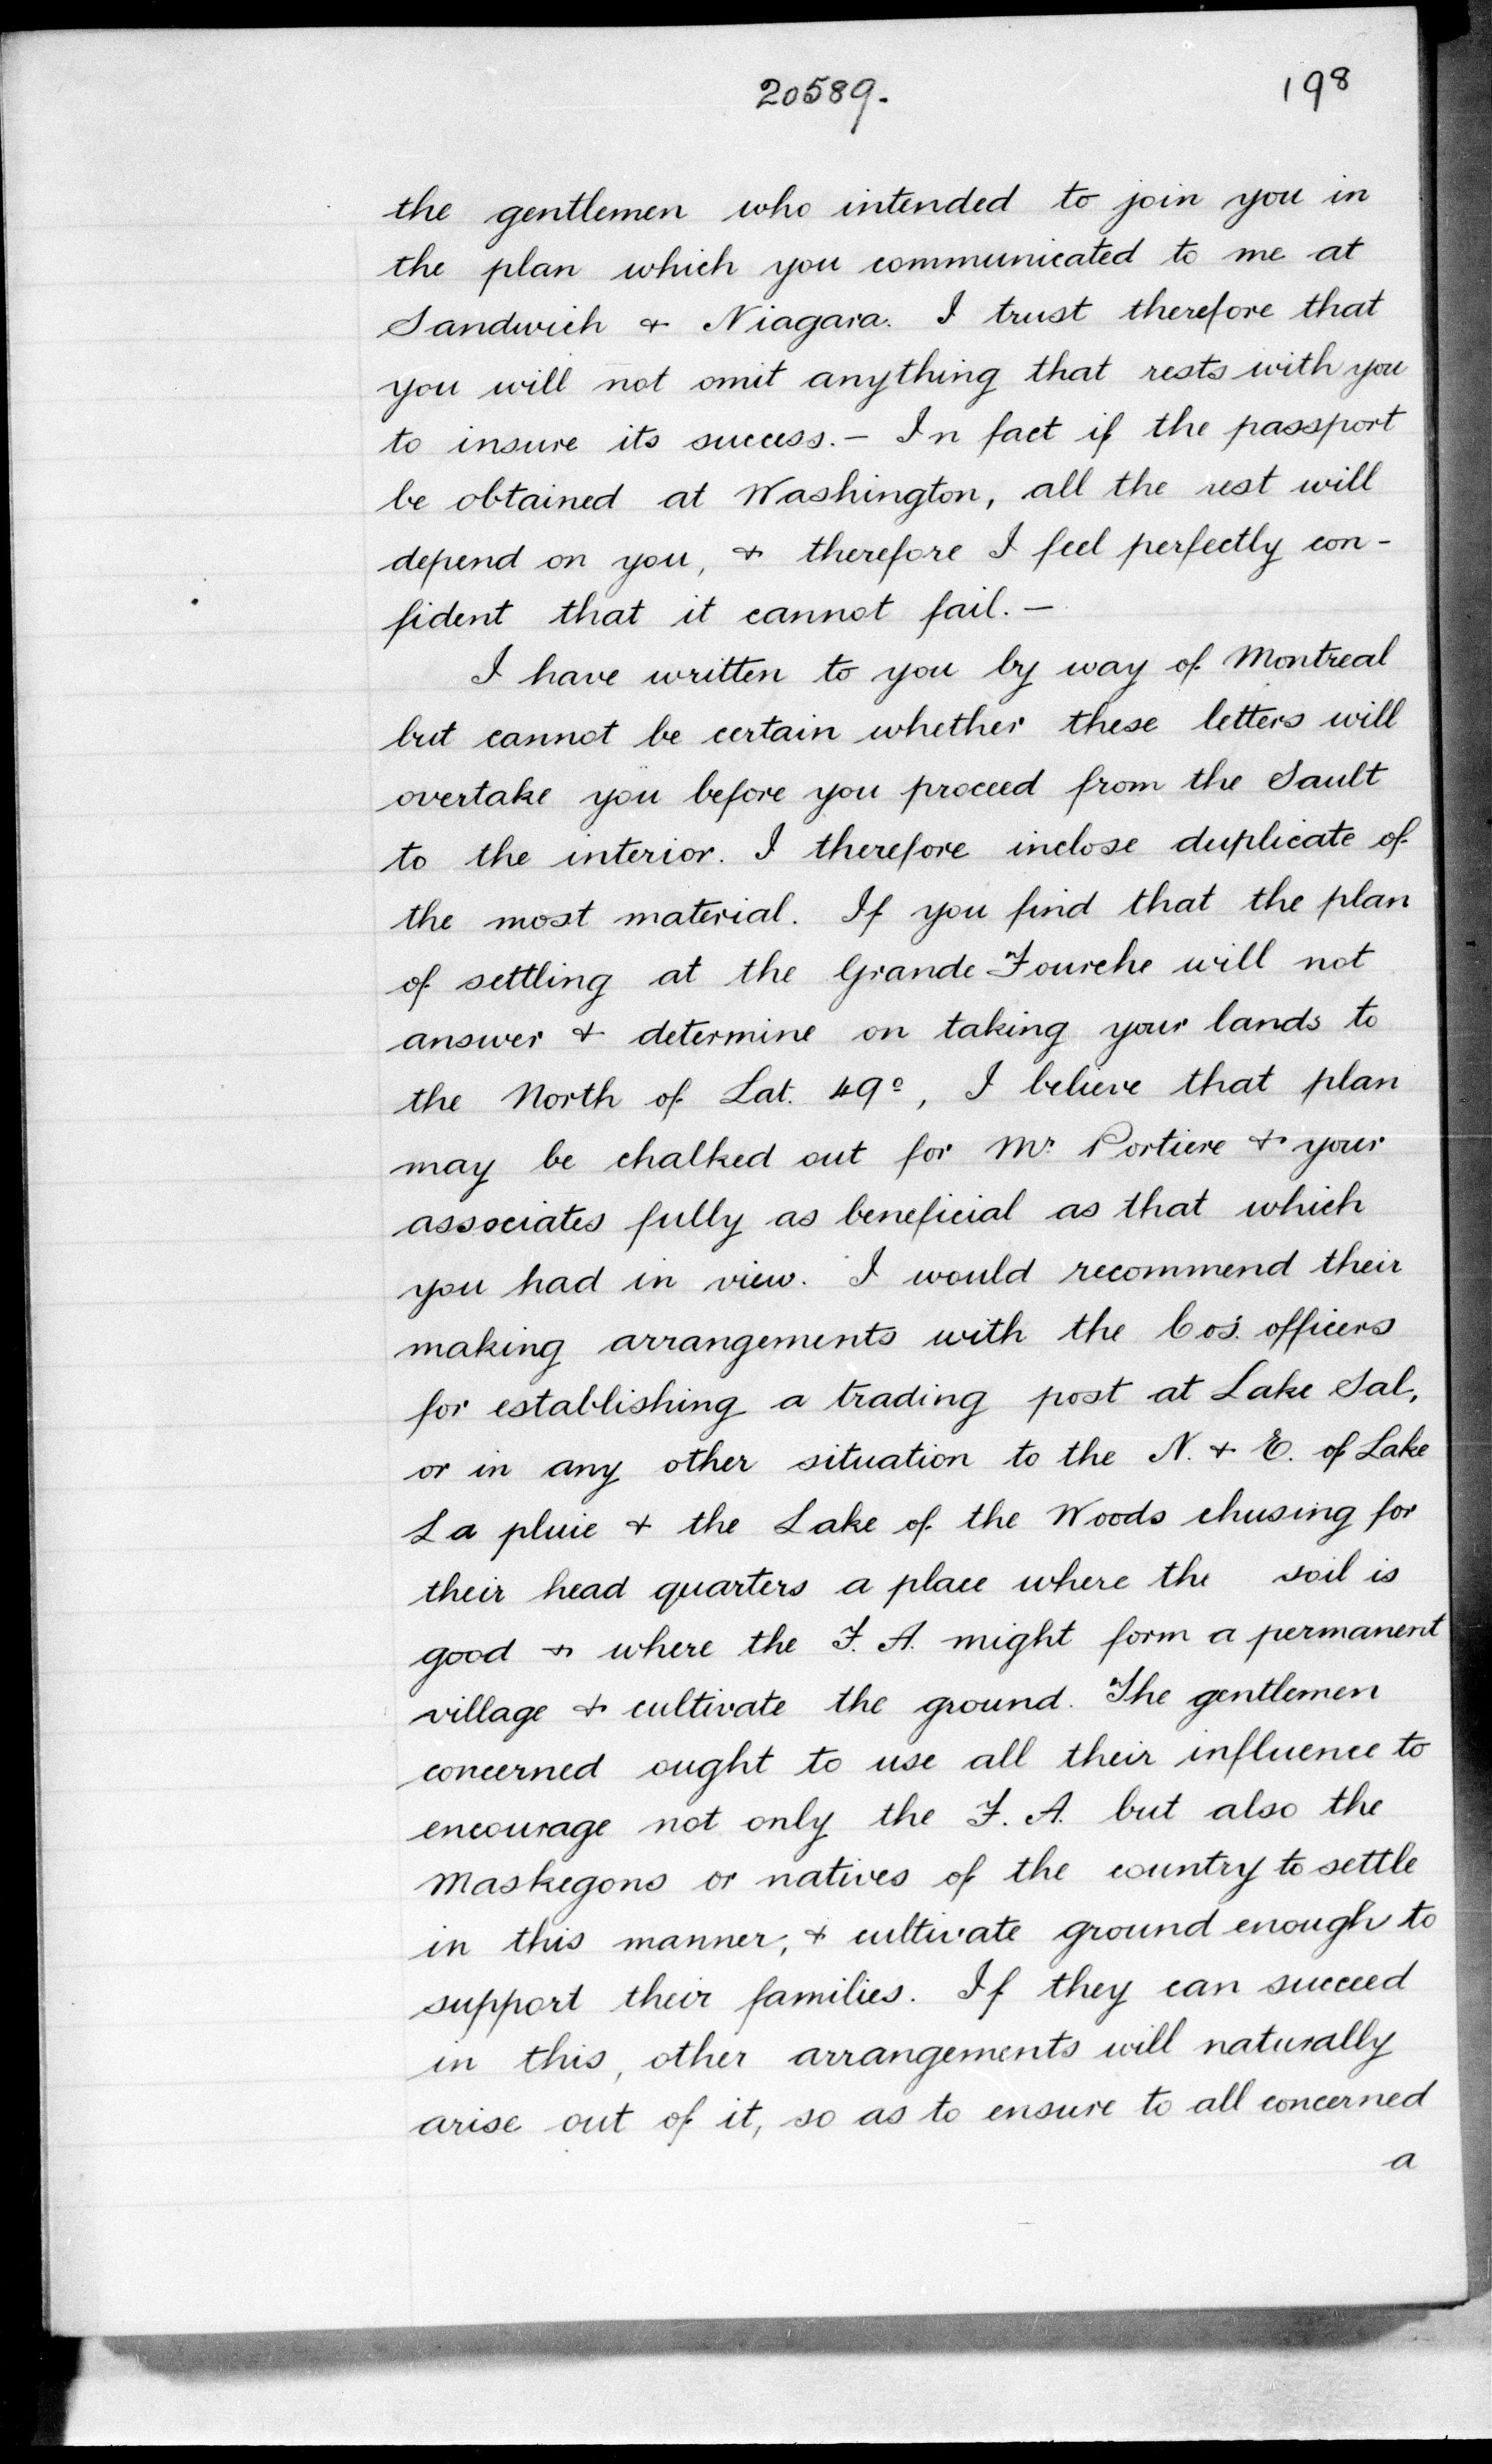 20589.
198
the gentlemen who intended to join you in
the plan which you communicated to me at
Sandwich & Niagara. I trust therefore that
you will not omit anything that rests with you
to insure its success. - In fact if the passport
be obtained at Washington, all the rest will
depend on you, & therefore I feel perfectly con-
fident that it cannot fail. -
I have written to you by way of Montreal
but cannot be certain whether these letters will
overtake you before you proceed from the Sault
to the interior. I therefore inclose duplicate of
the most material. If you find that the plan
of settling at the Grande Fourche will not
answer & determine on taking your lands to
the North of Lat. 49º, I believe that plan
may be chalked out for Mr. Portiere & your
associates fully as beneficial as that which
you had in view. I would recommend their
making arrangements with the Cos. officers
for establishing a trading post at Lake Sal,
or in any other situation to the N. & E. of Lake
La pluie & the Lake of the Woods chusing for
their head quarters a place where the soil is
good & where the F. A. might form a permanent
village & cultivate the ground. The gentlemen
concerned ought to use all their influence to
encourage not only the F. A. but also the
Maskegons or natives of the country to settle
in this manner, & cultivate ground enough to
support their families. If they can succeed
in this, other arrangements will naturally
arise out of it, so as to ensure to all concerned
a